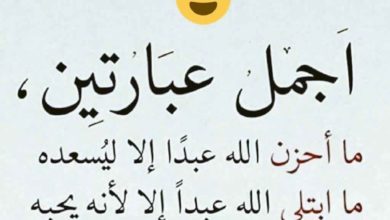 اَجمل عبَارتِين،
ما أحزن الله عبدًا إلا ليُسعده
ما ابتلى الله عبداً إلا لأنه يحبه